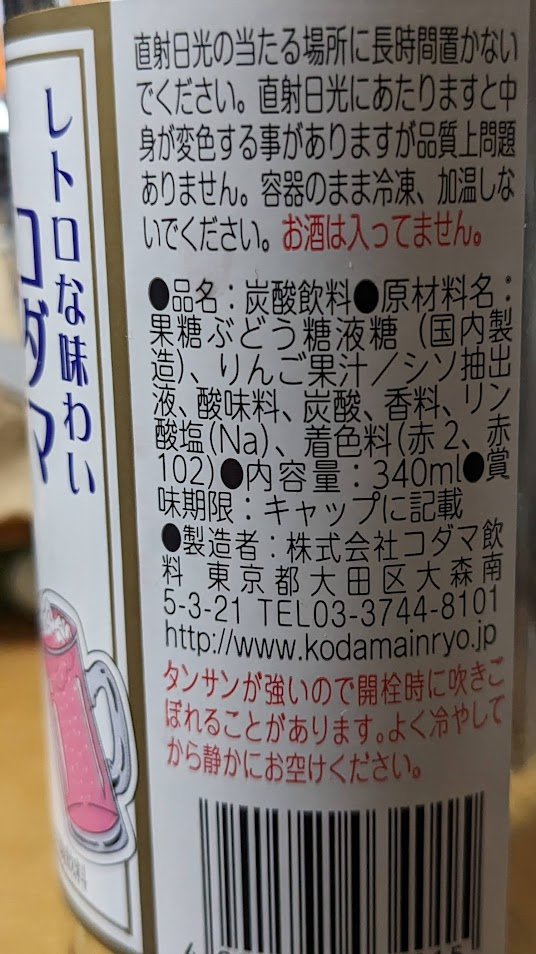 レトロな味わい
コダマ
直射日光の当たる場所に長時間置かない
でください。直射日光にあたりますと中
身が変色する事がありますが品質上問題
ありません。容器のまま冷凍、加温しな
いでください。お酒は入ってません。
●品名：炭酸飲料●原材料名：
果糖ぶどう糖液糖（国内製
造）、りんご果汁／シソ抽出
液、酸味料、炭酸、香料、リン
酸塩(Na)、着色料(赤2、赤
102)●内容量：340ml●賞
味期限：キャップに記載
●製造者：株式会社コダマ飲
料 東京都大田区大森南
5-3-21 TEL03-3744-8101
http://www.kodamainryo.jp
タンサンが強いので開栓時に吹きこ
ぼれることがあります。よく冷やして
から静かにお空けください。